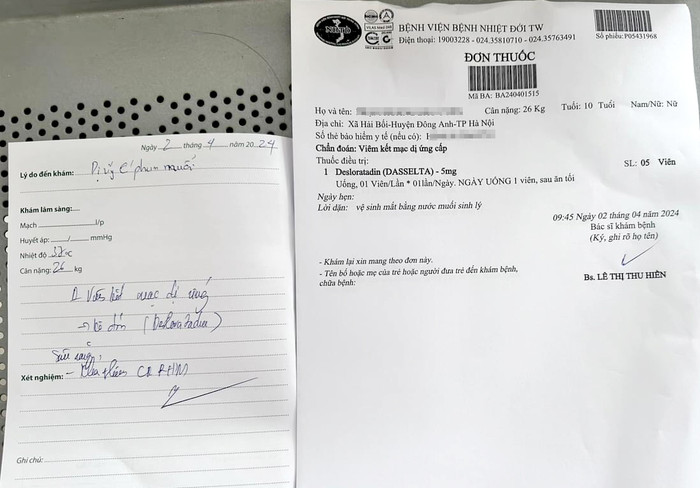 Ngày 2 tháng 4 năm 2024
Lý do đến khám: Dị ứng phun muối
Khám lâm sàng:
Mạch l/p
Huyết áp: / mmHg
Nhiệt độ 37 °C
Cân nặng: 26 kg
Viêm kết mạc dị ứng
(Desloratadin)
Xét nghiệm:
Ghi chú:
NHTD
BỆNH VIỆN BỆNH NHIỆT ĐỚI TW
Điện thoại: 19003228 - 024.35810710 - 024.35763491
Số phiếu: P05431968
ĐƠN THUỐC
Mã BA: BA240401515
Họ và tên: Cân nặng: 26 Kg Tuổi: 10 Tuổi Nam/Nữ: Nữ
Địa chỉ: Xã Hải Bối-Huyện Đông Anh-TP Hà Nội
Số thẻ bảo hiểm y tế (nếu có):
Chẩn đoán: Viêm kết mạc dị ứng cấp
Thuốc điều trị:
1 Desloratadin (DASSELTA) - 5mg SL: 05 Viên
Uống, 01 Viên/Lần * 01lần/Ngày. NGÀY UỐNG 1 viên, sau ăn tối
Ngày hẹn:
Lời dặn: vệ sinh mắt bằng nước muối sinh lý
09:45 Ngày 02 tháng 04 năm 2024
Bác sĩ khám bệnh
(Ký, ghi rõ họ tên)
- Khám lại xin mang theo đơn này.
- Tên bố hoặc mẹ của trẻ hoặc người đưa trẻ đến khám bệnh,
chữa bệnh:
Bs. LÊ THỊ THU HIỀN